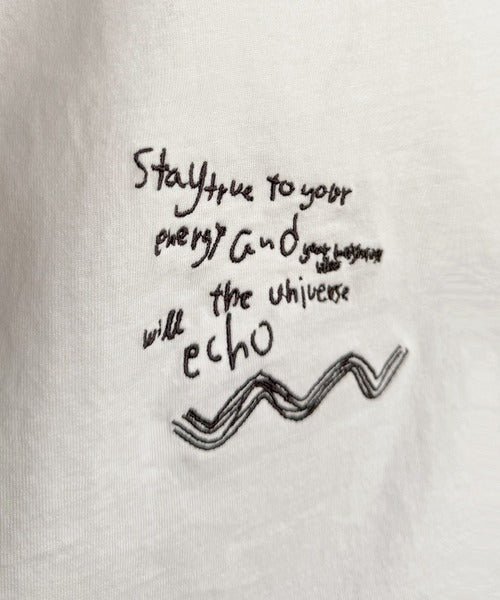 Stay true to your
energy and your
the universe
will echo